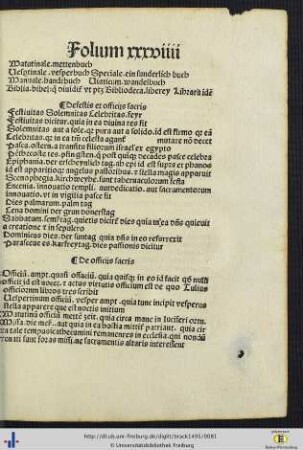 Folium xxxviiii
Matutinale. mettenbuch
Vesptinale. vesperbuch Speciale. ein sunderlich buch
Manuale. handtbuch Viaticum. wandelbuch
Biblia. bibel: q̄ dividit̄ vt ptꝫ Bibliodeca. liberey Libraria idē
De festis et officijs sacris
Festiuitas Solemnitas Celebritas. feyr
Festiuitas dicitur. quia in ea diuina res fit
Solemnitas aut a sole. qꝫ pura aut a solido. id est firmo qꝫ eā
Celebritas. qꝫ in ea tm̄ celestia agant̄ mutare nō decet
Pasca. ostern. a transitu filiorum israel ex egypto
Penthecoste tes. pfingsten. q̄ post quīqꝫ decades pasce celebra
Epiphania. der erscheynūg tag. ab epi id est supra et phanos
id est apparitio qꝫ angelus pastoribus. et stella magis apparuit
Scenophegia. kirchweyhe. sunt tabernaculorum festa
Encenia. innouatio templi. aut dedicatio. aut sacramentorum
innouatio. vt in vigilia pasce fit
Dies palmarum. palm tag
Cena domini der grun donerstag
Sabbatum. samstag. quietis dicit̄ dies quia in ea dn̄s quieuit
a creatione et in sepulcro
Dominicus dies. der suntag quia dn̄s in eo resurrexit
Parasceue es. karfreytag. dies passionis dicitur
De officijs sacris
Officiū. ampt. quasi efficiū. quia quisqꝫ in eo id facit qꝫ nulli
officit id est nocet. et actus virtutis officium est de quo Tulius
officiorum libros tres scribit
Vespertinum officiū. vesper ampt. quia tunc incipit vesperus
stella apparere que est noctis initium
Matutinū officiū mettē zeit. quia circa mane in luciferi orin.
Missa. die meß. aut quia in ea hostia mittit̄ patri aut. quia cir
ca tale tempus cathecumini remanentes in ecclesia. qui nondū
renati sunt foras missi. ne sacramentis altaris interessent
http://dl.ub.uni-freiburg.de/diglit/brack1495/0081
© Universitätsbibliothek Freiburg